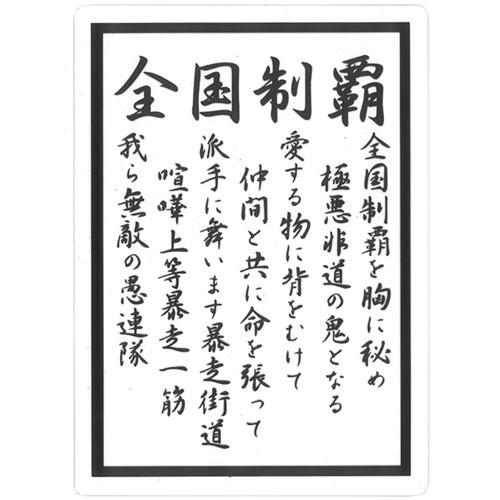 全国制覇
全国制覇を胸に秘め
極悪非道の鬼となる
愛する物に背をむけて
仲間と共に命を張って
派手に舞います暴走街道
喧嘩上等暴走一筋
我ら無敵の愚連隊